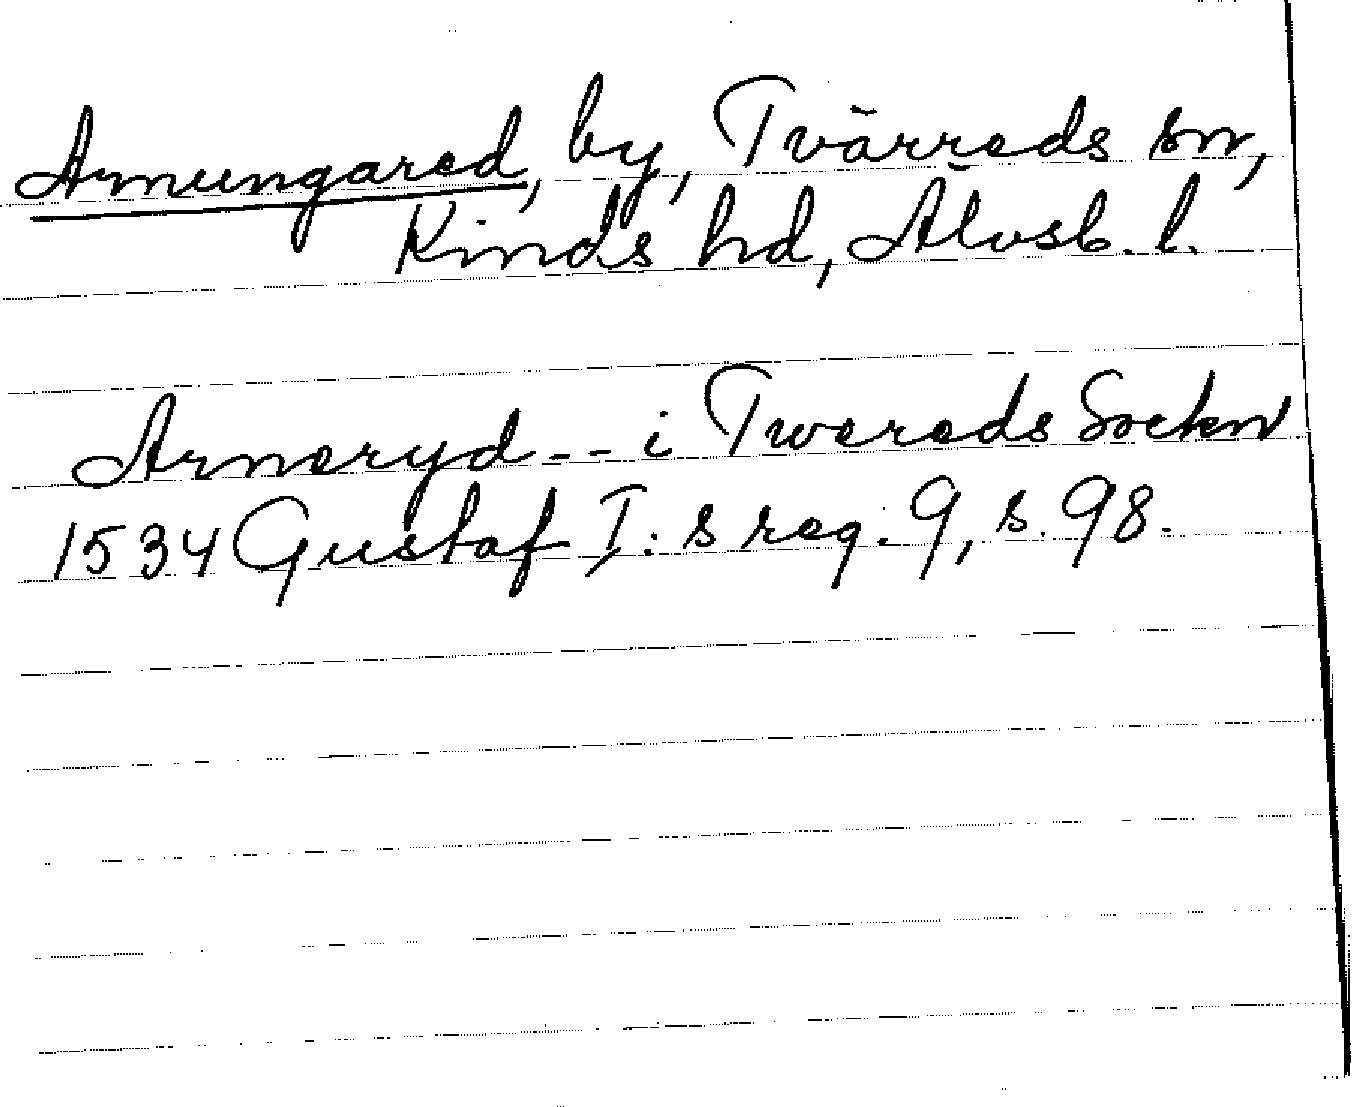 Armungared, by, Tvärreds sn,
Kinds hd, Älvsb. l.
Arneryd -- i Twereds Sockn
1534 Gustaf I:s reg. 9, s. 98.